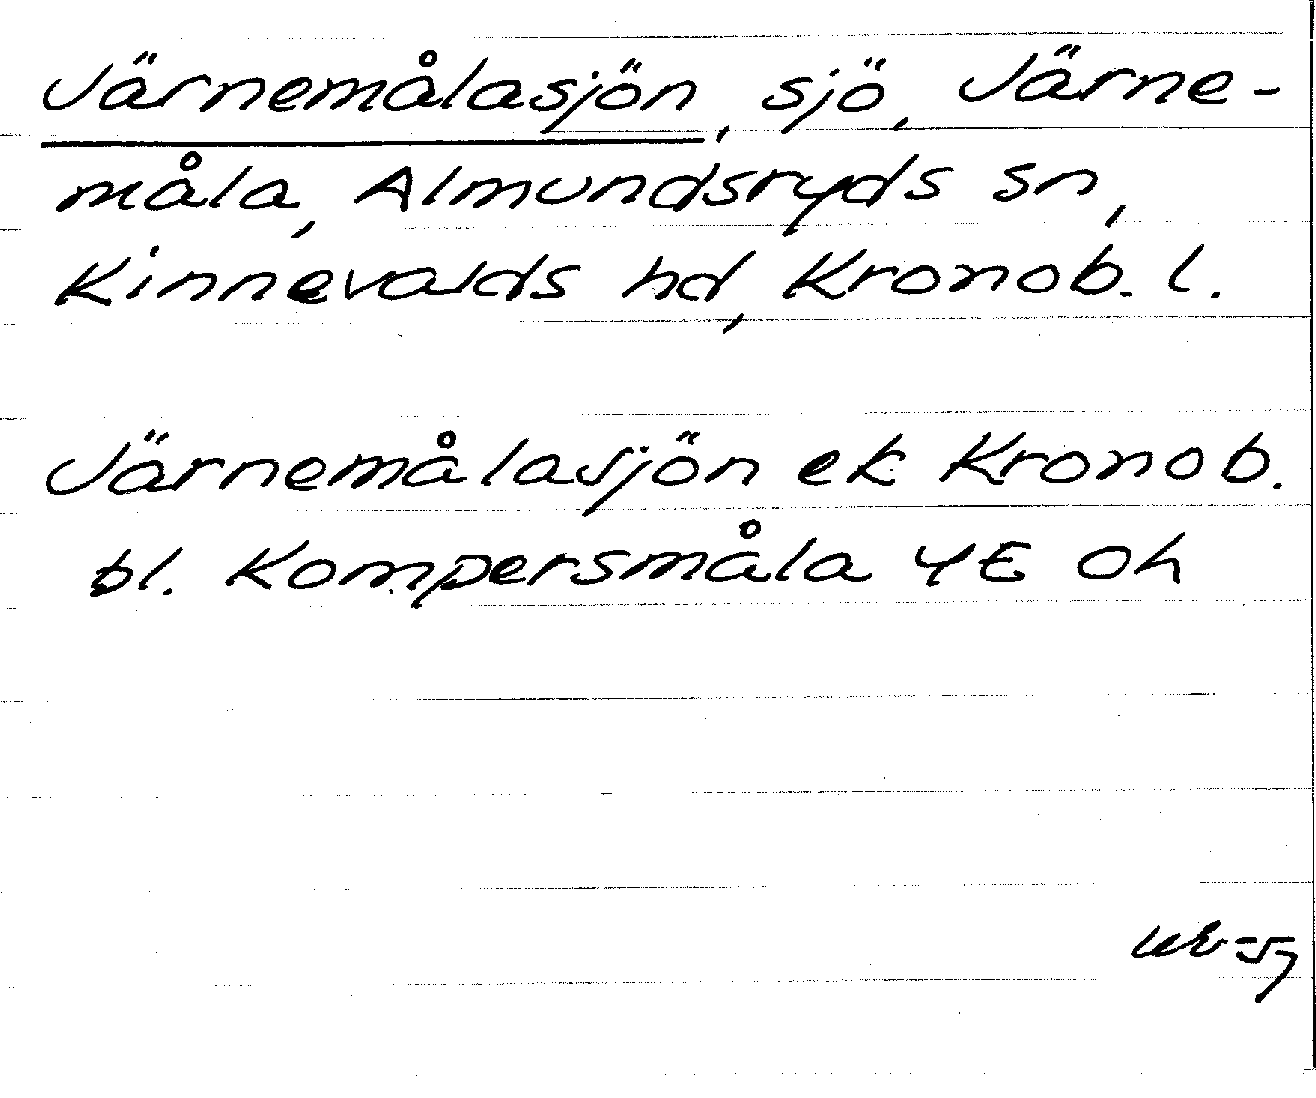 Järnemålasjön, sjö, Järne-
måla, Almundsryds sn,
Kinnevalds hd, Kronob. l.
Järnemålasjön ek Kronob.
bl. Kompersmåla 4E Oh